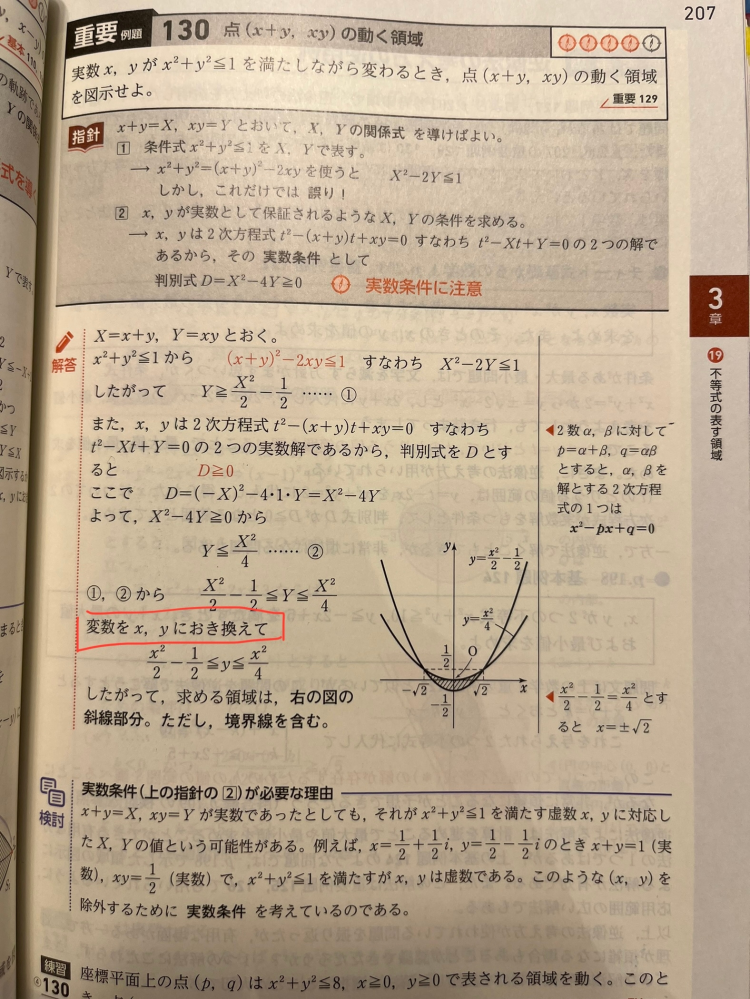 207
重要 例題 130 点(x+y, xy)の動く領域
実数x, yがx²+y²≦1を満たしながら変わるとき,点(x+y, xy)の動く領域
を図示せよ。
重要129
指針
x+y=X, xy=Yとおいて,X, Yの関係式 を導けばよい。
1 条件式x²+y²≦1をX, Yで表す。
→ x²+y²=(x+y)²-2xyを使うと X²-2Y≦1
しかし,これだけでは 誤り!
2 x, yが実数として保証されるようなX, Yの条件を求める。
→ x, yは2次方程式t²-(x+y)t+xy=0 すなわち t²-Xt+Y=0の2つの解で
あるから,その 実数条件 として
判別式D=X²-4Y≧0 実数条件に注意
解答
X=x+y, Y=xyとおく。
x²+y²≦1から (x+y)²-2xy≦1 すなわち X²-2Y≦1
したがって Y≧X²/2-1/2 …… ①
また,x, yは2次方程式t²-(x+y)t+xy=0 すなわち
t²-Xt+Y=0の2つの実数解であるから,判別式をDとす
ると D≧0
ここで D=(-X)²-4・1・Y=X²-4Y
よって,X²-4Y≧0から
Y≦X²/4 …… ②
①,②から X²/2-1/2≦Y≦X²/4
変数をx, yにおき換えて
x²/2-1/2≦y≦x²/4
したがって,求める領域は,右の図の
斜線部分。ただし,境界線を含む。
◀2数α, βに対して
p=α+β, q=αβ
とすると,α, βを
解とする2次方程
式の1つは
x²-px+q=0
y
y=x²/2-1/2
y=x²/4
1/2
O
-√2
√2
x
-1/2
◀x²/2-1/2=x²/4とす
ると x=±√2
3
章
⑲
不等式の表す領域
検討
実数条件(上の指針の2)が必要な理由
x+y=X, xy=Yが実数であったとしても,それがx²+y²≦1を満たす虚数x, yに対応し
たX, Yの値という可能性がある。例えば,x=1/2+1/2i, y=1/2-1/2iのときx+y=1(実
数),xy=1/2(実数)で,x²+y²≦1を満たすがx, yは虚数である。このような(x, y)を
除外するために 実数条件 を考えているのである。
練習
④130
座標平面上の点(p, q)はx²+y²≦8, x≧0, y≧0で表される領域を動く。このと